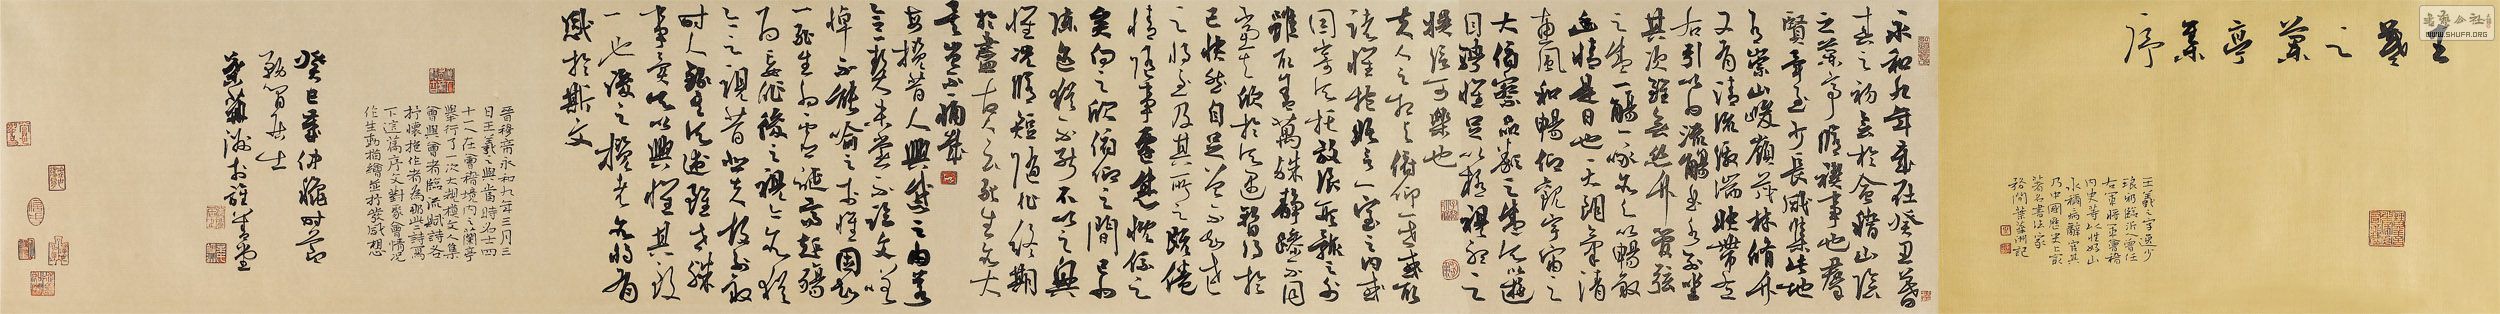 王羲之蘭亭集序
WWW.SHUFA.ORG
王羲之字逸少
琅邪臨沂人曾任
右軍將軍會稽
內史等以性好山
水稱病辭官其
乃中國歷史上最
著名書法家
務閒葉華洲記
永和九年歲在癸丑暮
春之初會於會稽山陰
之蘭亭脩禊事也羣
賢畢至少長咸集此地
有崇山峻嶺茂林脩竹
又有清流激湍映帶左
右引以為流觴曲水列坐
其次雖無絲竹管弦
之盛一觴一詠亦足以暢敘
幽情是日也天朗氣清
惠風和暢仰觀宇宙之
大俯察品類之盛所以遊
目騁懷足以極視聽之
娛信可樂也
夫人之相與俯仰一世或取
諸懷抱晤言一室之內或
因寄所託放浪形骸之外
雖取舍萬殊靜躁不同
當其欣於所遇暫得於
己快然自足曾不知老
之將至及其所之既倦
情隨事遷感慨係之
矣向之所欣俯仰之間已為
陳迹猶不能不以之興
懷況脩短隨化終期
於盡古人云死生亦大
矣豈不痛哉
每攬昔人興感之由若
合一契未嘗不臨文嗟
悼不能喻之於懷固知
一死生為虛誕齊彭殤
為妄作後之視今亦猶
今之視昔悲夫故列敘
時人錄其所述雖世殊
事異所以興懷其致
一也後之攬者亦將有
感於斯文
晉穆帝永和九年三月三
日王羲之與當時名士四
十一人在會稽境內之蘭亭
舉行了一次大規模文人集
會與會者臨流賦詩各
抒懷抱作者為那些詩寫
下這篇序文對聚會情況
作生動描繪並抒發感想
癸巳年仲穐時節
葉華洲於雅菁堂